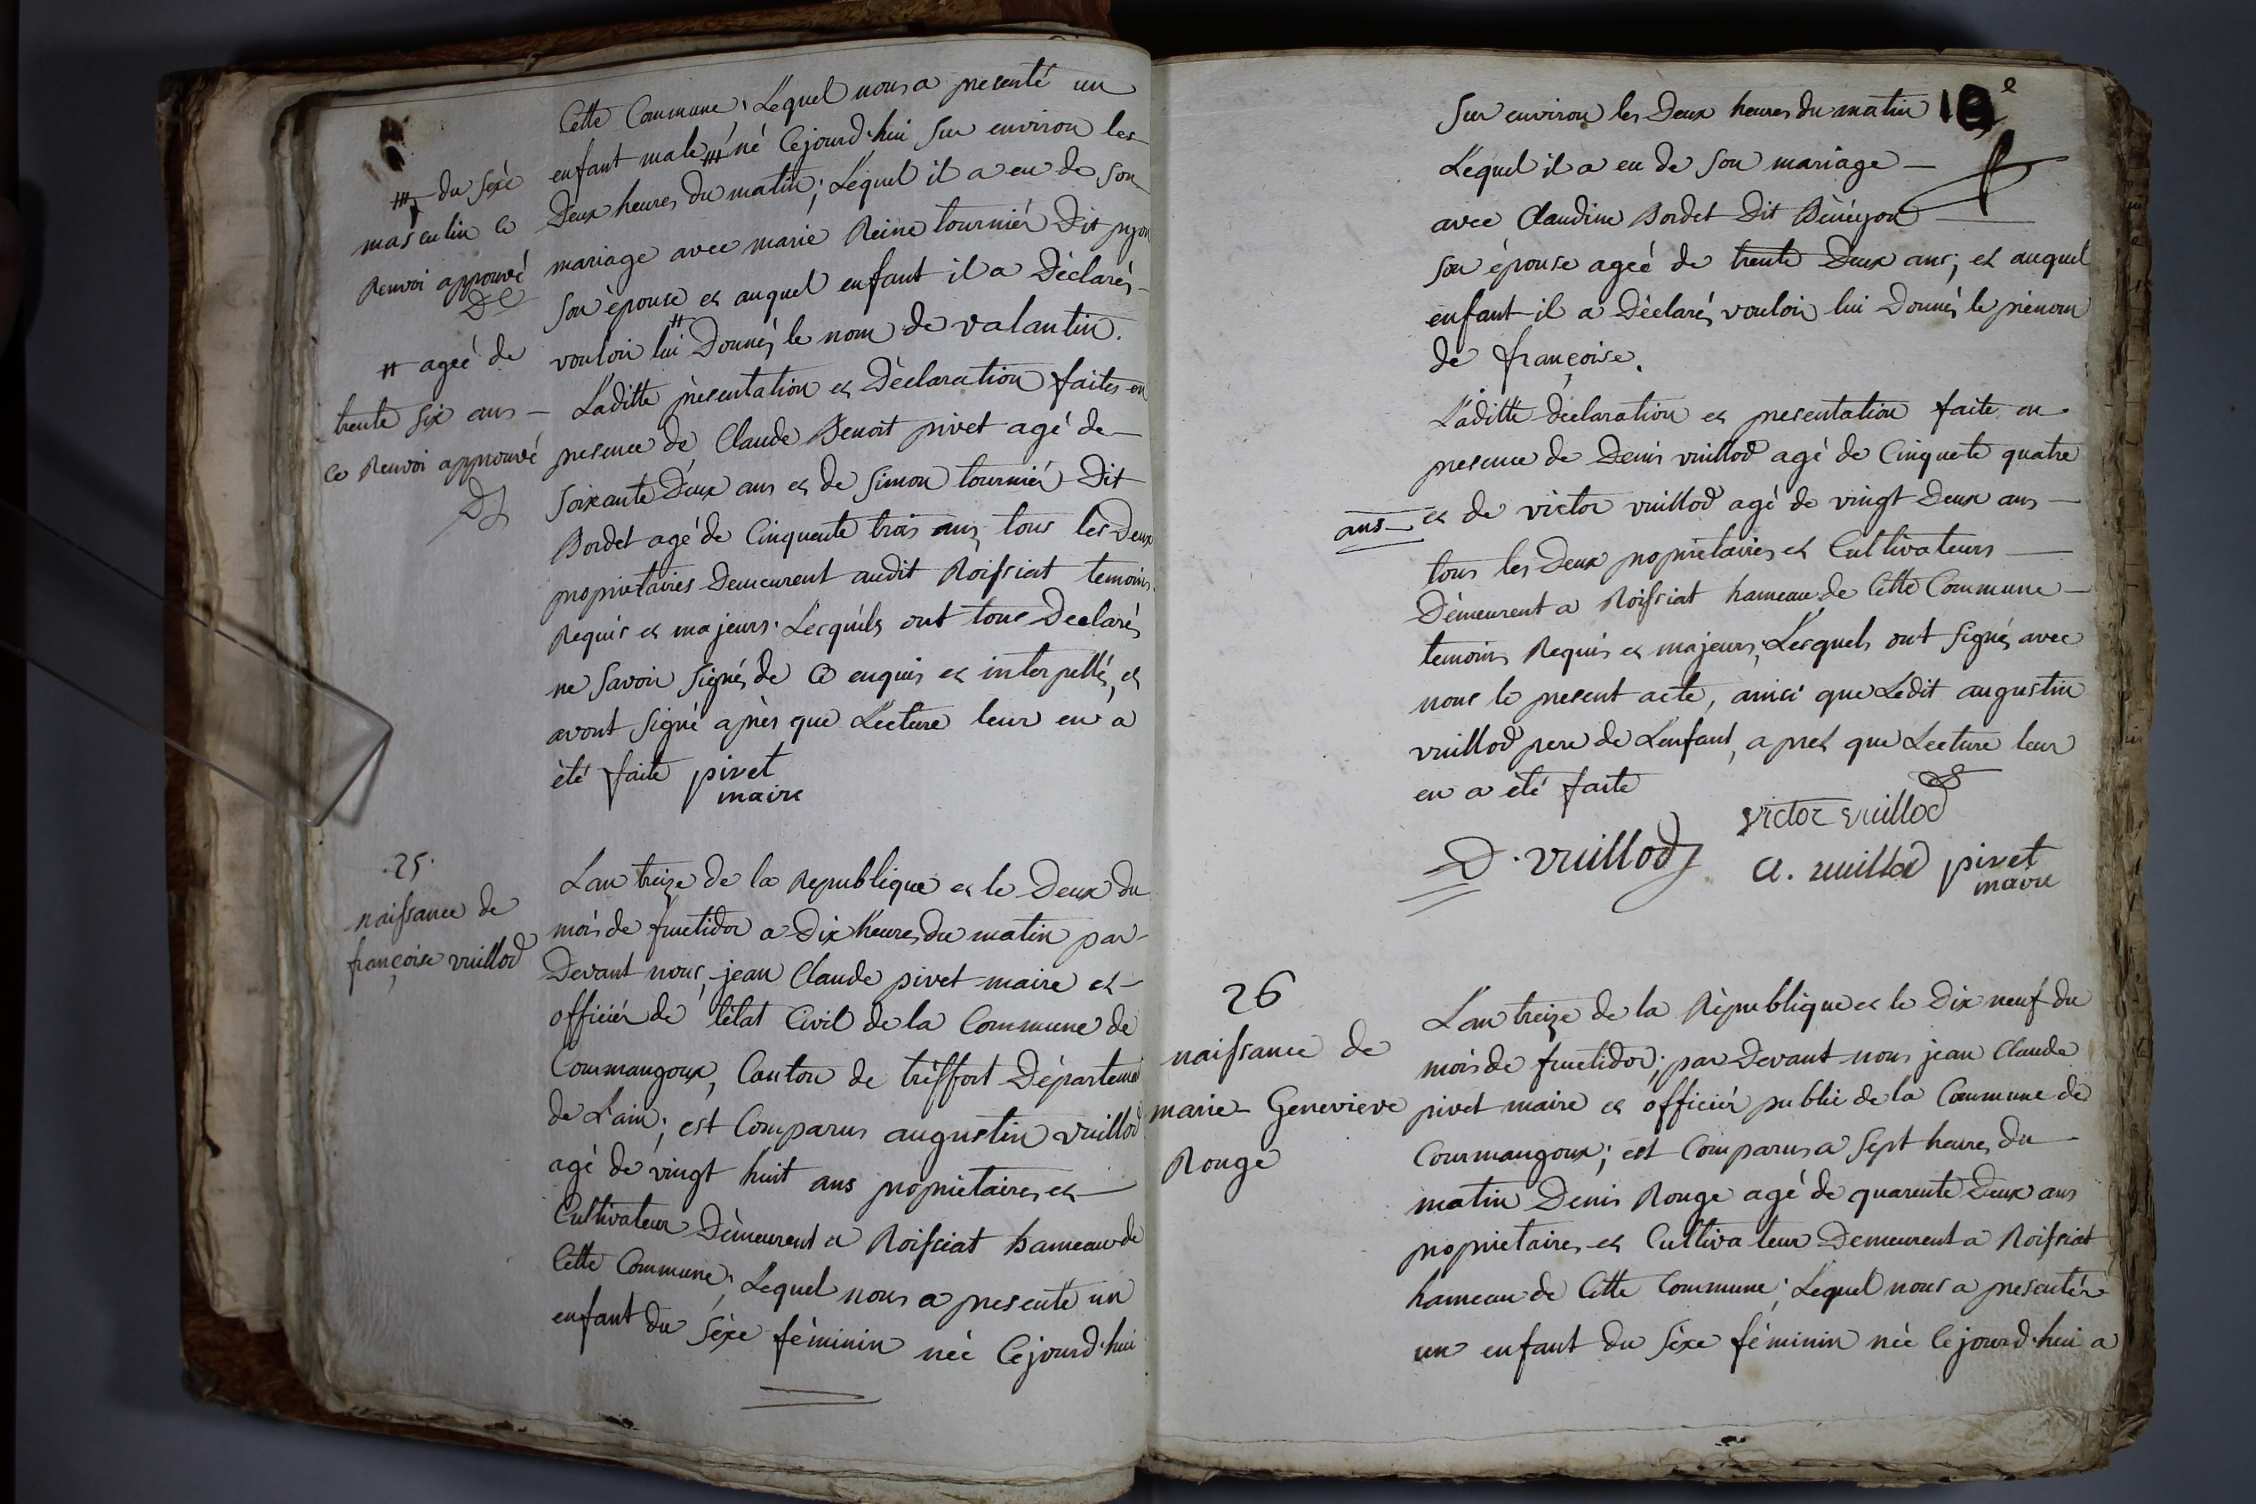 Cette Commune; Lequel nous a presenté un
enfant male né Cejourd'hui sur environ les
Deux heures du matin; Lequel il a eu de son
mariage avec marie Reine tournier Dit pyon
son épouse et auquel enfant il a Déclarés
vouloir lui Donnés le nom de valantin.
Laditte présentation et Déclaration faites en
presence de Claude Benoit pivet agé de
soixante Deux ans et de Simon tournier Dit
Bordet agé de Cinquente trois ans, tous les Deux
proprietaires Demeurent audit Roissiat temoins
Requis et majeurs. Lesquels ont tous Declarés
ne savoir signés de ce enquis et interpellés, et
avont signé après que Lecture leur en a
été faite pivet
maire
du sexe
masculin ce
Renvoi approuvé
agée de
trente six ans
ce Renvoi approuvé
25.
naissance de
françoise vuillod
Lan treize de la Republique et le Deux du
mois de fructidor a Dix heures du matin par
Devant nous, jean Claude pivet maire et
officiér de l'état Civil de la Commune de
Courmangoux, Canton de tréffort Département
de L'ain; est Comparus augustin vuillod
agé de vingt huit ans proprietaires et
Cultivateur Demeurent a Roissiat hameau de
Cette Commune; Lequel nous a presenté un
enfant du séxe féminin née Cejourd'hui
sur environ les Deux heures du matin
Lequel il a eu de son mariage
avec Claudine Bordet Dit
son épouse ageé de trente Deux ans; et auquel
enfant il a Déclarés vouloir lui Donnés le prénom
de françoise.
Laditte déclaration et presentation faite en
presence de Denis vuillod agé de Cinquete quatre
ans et de victor vuillod agé de vingt Deux ans
tous les Deux proprietaires et Cultivateurs
Démeurent a Roissiat hameau de Cette Commune
temoins Requis et majeurs; Lesquels ont signés avec
nous le present acte, ainsi que Ledit augustin
vuillod pere de Lenfant, a pres que Lecture leur
en a été faite
victor vuillod
D. vuillod a. vuillod pivet
maire
26
naissance de
marie Genevieve
Rouge
Lan treize de la République et le Dix neuf du
mois de fructidor; par Devant nous jean Claude
pivet maire et officiér public de la Commune de
Courmangoux; est Comparus a sept heures du
matin Denis Rouge agé de quarente Deux ans
proprietaires et Cultivateur Demeurent a Roissiat
hameau de Cette Commune; Lequel nous a presentér
un enfant du séxe féminin née Cejourd'hui a